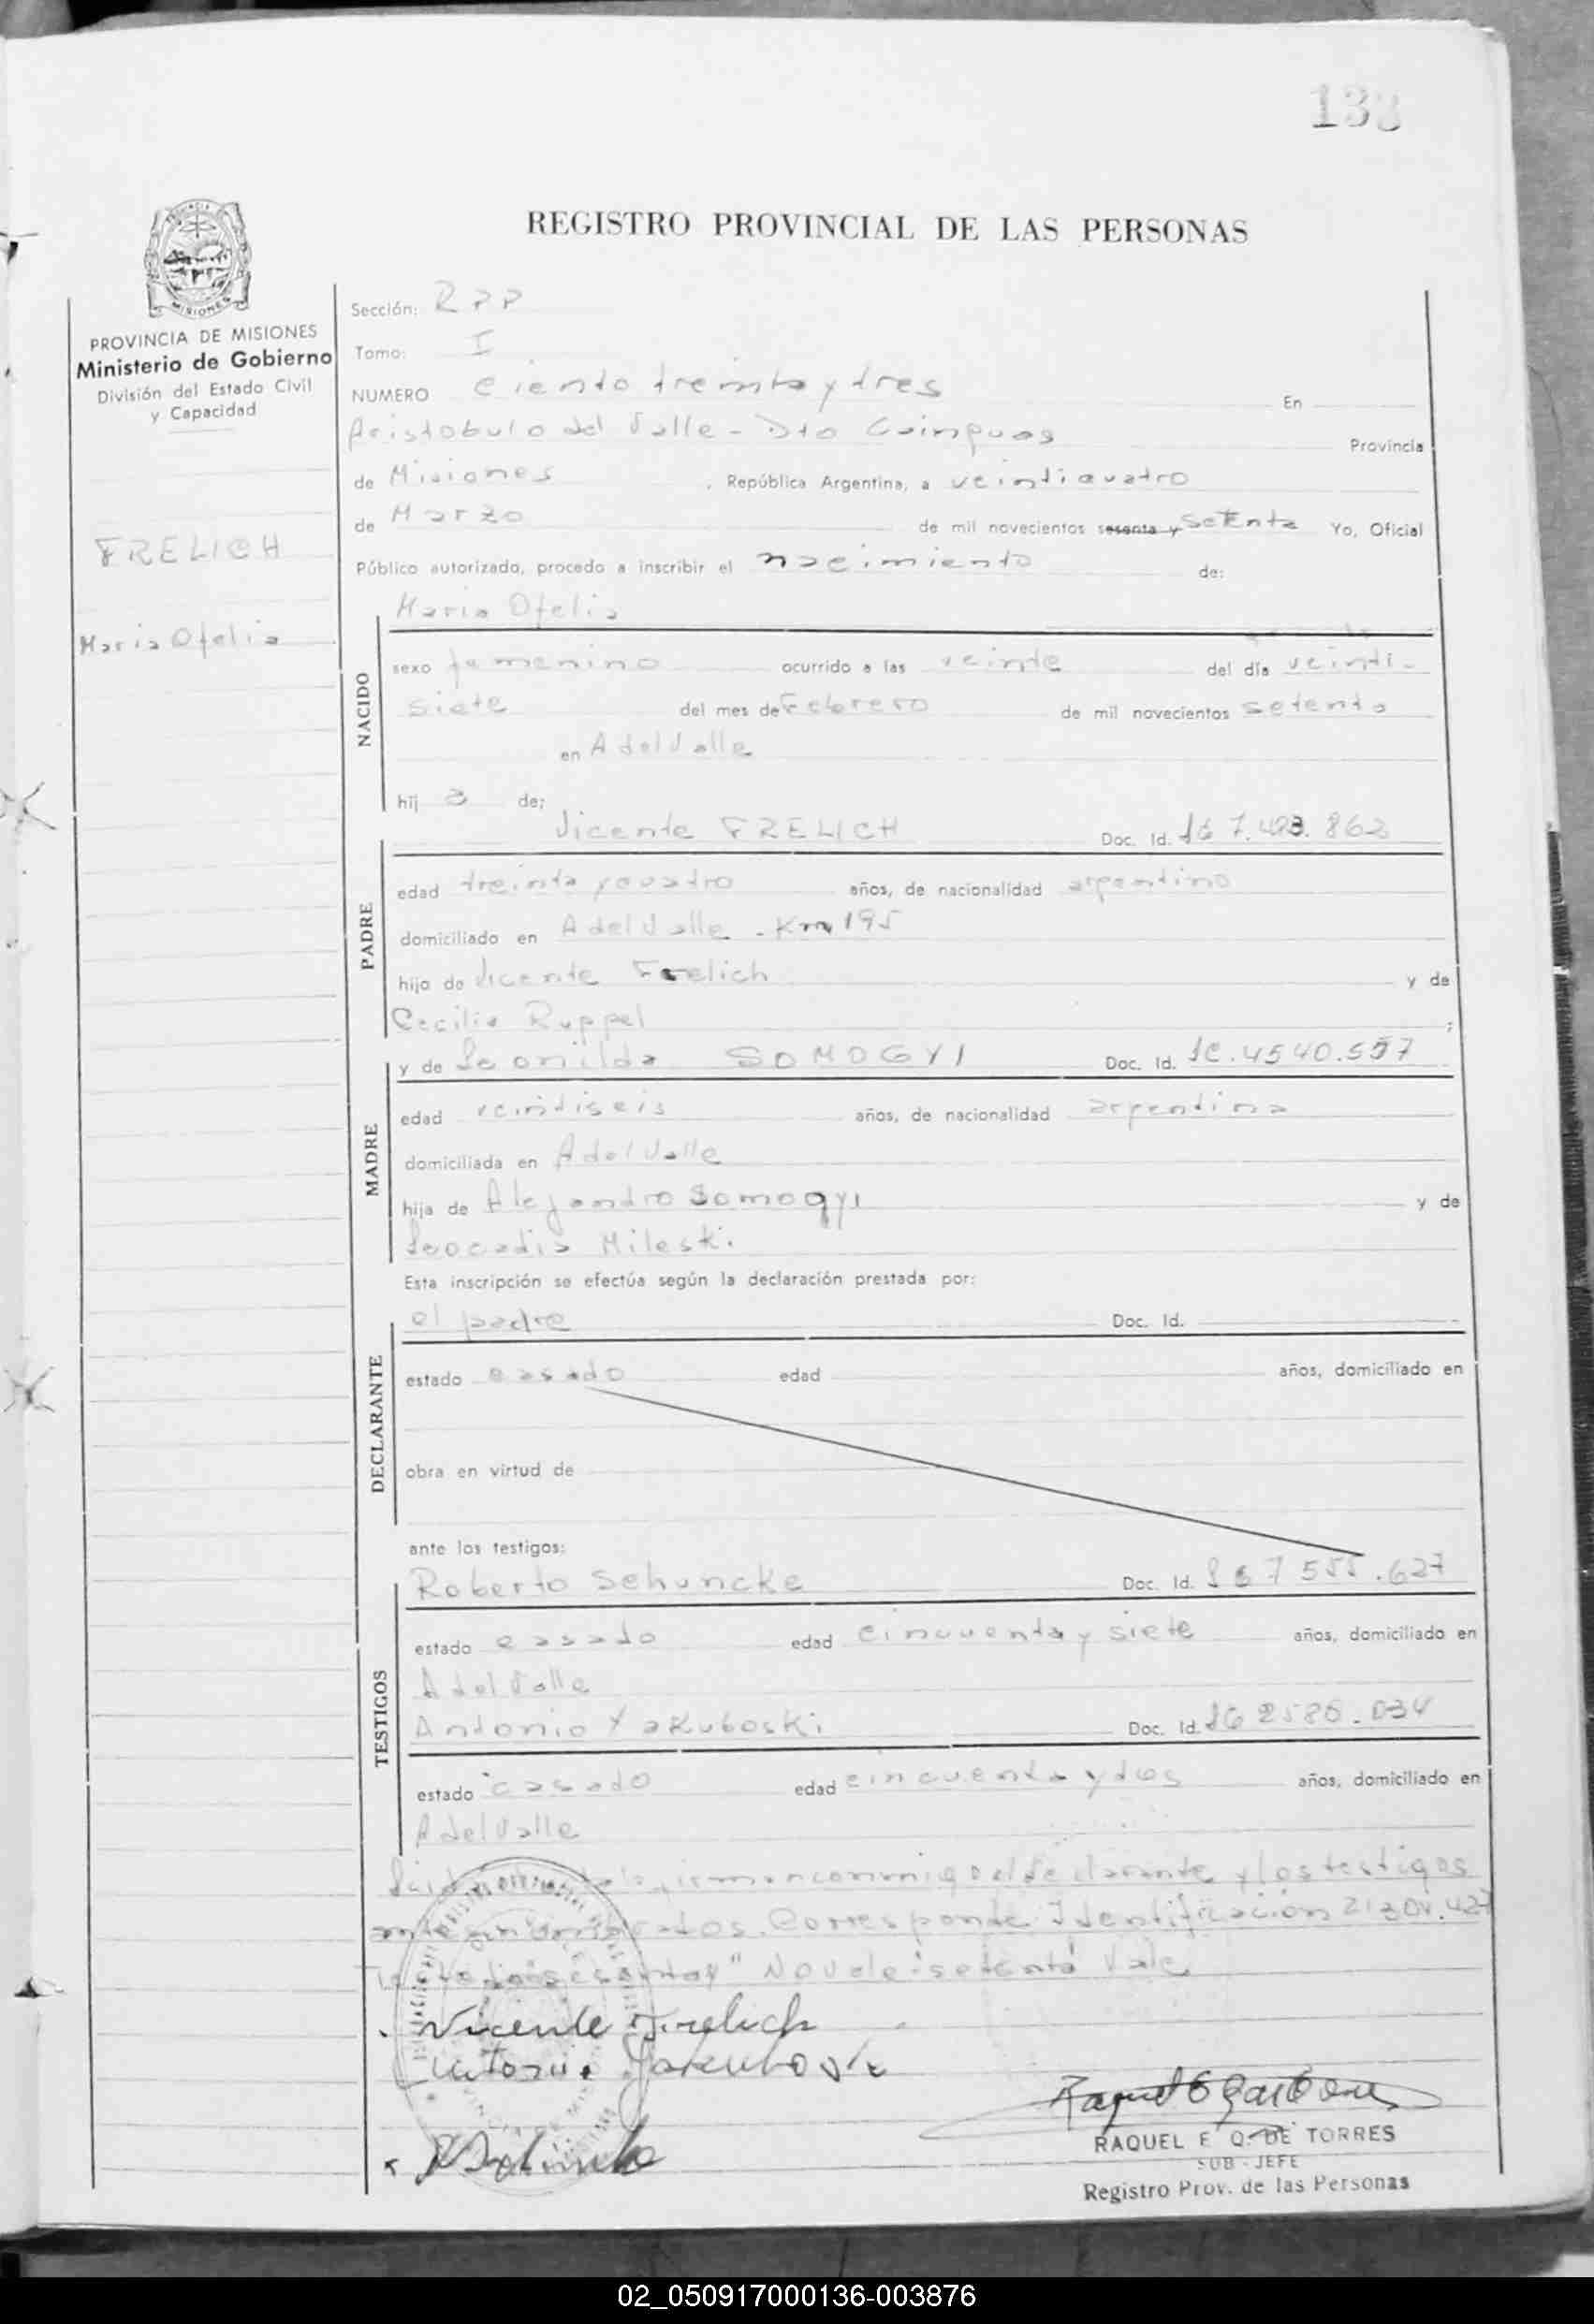 133
REGISTRO PROVINCIAL DE LAS PERSONAS
PROVINCIA DE MISIONES
Ministerio de Gobierno
División del Estado Civil
y Capacidad
FRELICH
Maria Ofelia
Sección: RPP
Tomo: I
NUMERO Ciento treinta y tres En
Aristobulo del Valle - Dto Cainguas Provincia
de Misiones, República Argentina, a veinticuatro
de Marzo de mil novecientos sesenta y Setenta Yo, Oficial
Público autorizado, procedo a inscribir el nacimiento de:
Maria Ofelia
NACIDO
sexo femenino ocurrido a las veinte del día veinti-
siete del mes de Febrero de mil novecientos setenta
en A del Valle
hij a de:
Vicente FRELICH Doc. Id. 7.493.862
PADRE
edad treinta y cuatro años, de nacionalidad argentino
domiciliado en A del Valle - Km 195
hijo de Vicente Frelich y de
Cecilia Ruppel ;
y de Leonilda SOMOGYI Doc. Id. 4540.557
MADRE
edad veintiseis años, de nacionalidad argentina
domiciliada en A del Valle
hija de Alejandro Somogyi y de
Leocadia Mileski
Esta inscripción se efectúa según la declaración prestada por:
el padre Doc. Id.
DECLARANTE
estado casado edad años, domiciliado en
obra en virtud de
ante los testigos:
Roberto Schuncke Doc. Id. 7555.627
TESTIGOS
estado casado edad cincuenta y siete años, domiciliado en
A del Valle
Antonio Yakuboski Doc. Id. 2586.034
estado casado edad cincuenta y dos años, domiciliado en
A del Valle
firman conmigo el declarante y los testigos
Corresponde Identificación 21304.427
"sesenta y" No vale: setenta Vale
Vicente Frelich
Antonio Yakuboski
RAQUEL E Q. DE TORRES
SUB-JEFE
Registro Prov. de las Personas
02_050917000136-003876